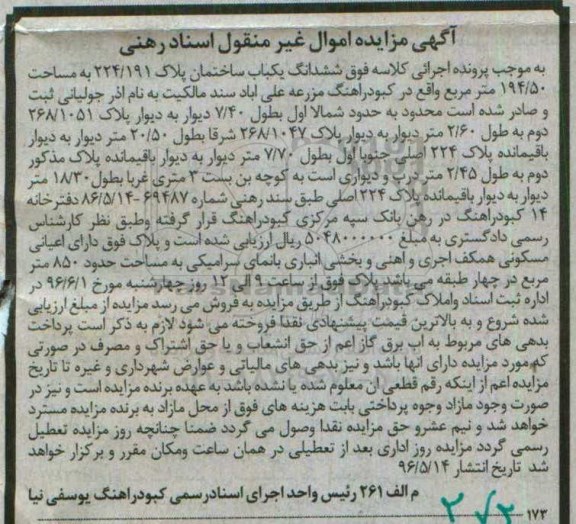 آگهی مزایده اموال غیر منقول اسناد رهنی
به موجب پرونده اجرائی کلاسه فوق ششدانگ یکباب ساختمان پلاک ۲۲۴/۱۹۱ به مساحت
۱۹۴/۵۰ متر مربع واقع در کبودراهنگ مزرعه علی اباد سند مالکیت به نام اذر جولیانی ثبت
و صادر شده است محدود به حدود شمالا اول بطول ۷/۴۰ دیوار به دیوار پلاک ۲۶۸/۱۰۵۱
دوم به طول ۲/۶۰ متر دیوار به دیوار پلاک ۲۶۸/۱۰۴۷ شرقا بطول ۲۰/۵۰ متر دیوار به دیوار
باقیمانده پلاک ۲۲۴ اصلی جنوبا اول بطول ۷/۷۰ متر دیوار به دیوار باقیمانده پلاک مذکور
دوم به طول ۲/۴۵ متر درب و دیواری است به کوچه بن بست ۳ متری غربا بطول ۱۸/۳۰ متر
دیوار به دیوار باقیمانده پلاک ۲۲۴ اصلی طبق سند رهنی شماره ۶۹۴۸۷ -۸۶/۵/۱۴ دفترخانه
۱۴ کبودراهنگ در رهن بانک سپه مرکزی کبودراهنگ قرار گرفته وطبق نظر کارشناس
رسمی دادگستری به مبلغ ۵۰۴۸۰۰۰۰۰۰ ریال ارزیابی شده است و پلاک فوق دارای اعیانی
مسکونی همکف اجری و اهنی و بخشی انباری بانمای سرامیکی به مساحت حدود ۸۵۰ متر
مربع در چهار طبقه می باشد پلاک فوق از ساعت ۹ الی ۱۲ روز چهارشنبه مورخ ۹۶/۶/۱ در
اداره ثبت اسناد واملاک کبودراهنگ از طریق مزایده به فروش می رسد مزایده از مبلغ ارزیابی
شده شروع و به بالاترین قیمت پیشنهادی نقدا فروخته می شود لازم به ذکر است پرداخت
بدهی های مربوط به اب برق گاز اعم از حق انشعاب و یا حق اشتراک و مصرف در صورتی
که مورد مزایده دارای انها باشد و نیز بدهی های مالیاتی و عوارض شهرداری و غیره تا تاریخ
مزایده اعم از اینکه رقم قطعی ان معلوم شده یا نشده باشد به عهده برنده مزایده است و نیز در
صورت وجود مازاد وجوه پرداختی بابت هزینه های فوق از محل مازاد به برنده مزایده مسترد
خواهد شد و نیم عشرو حق مزایده نقدا وصول می گردد ضمنا چنانچه روز مزایده تعطیل
رسمی گردد مزایده روز اداری بعد از تعطیلی در همان ساعت ومکان مقرر و برکزار خواهد
شد تاریخ انتشار ۹۶/۵/۱۴
م الف ۲۶۱ رئیس واحد اجرای اسنادرسمی کبودراهنگ یوسفی نیا
۱۷۳